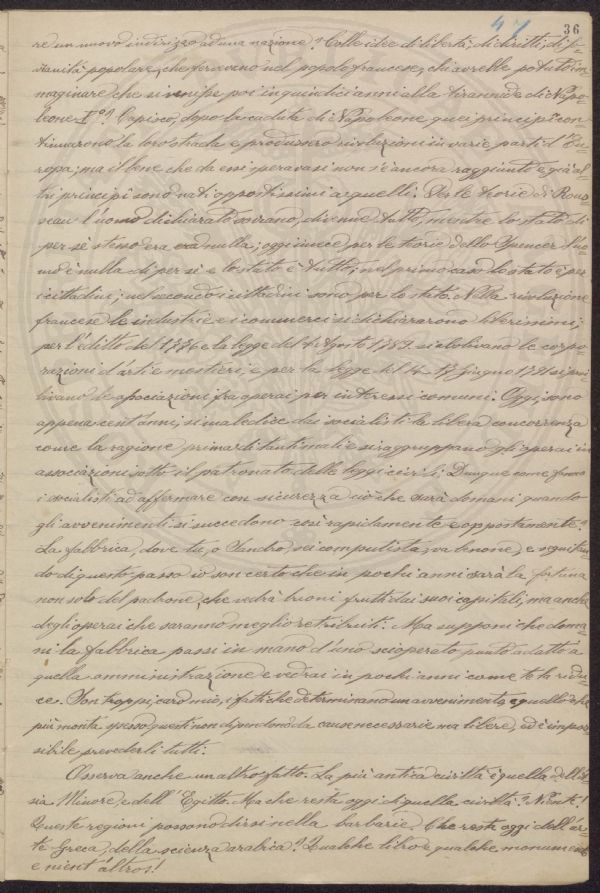 47 36
re un nuovo indirizzo ad una nazione? Colle idee di libertà, di diritti, di so-
vranità popolare, che fervevano nel popolo francese, chi avrebbe potuto im-
maginare che si venisse poi in quindici anni alla tirannide di Napo-
leone I°? Capisco, dopo la caduta di Napoleone quei principi con-
tinuarono la loro strada e produssero rivoluzioni in varie parti d'Eu-
ropa; ma il bene che da essi speravasi non s'è ancora raggiunto e già al-
tri principi sono nati oppostissimi a quelli. Per le teorie di Rous-
seau l'uomo dichiarato sovrano, divenne tutto, mentre lo stato di
per sé stesso era nulla; oggi invece, per le teorie dello Spencer l'uo-
mo è nulla di per sé e lo stato è tutto; nel primo caso lo stato è per
i cittadini; nel secondo i cittadini sono per lo stato. Nella rivoluzione
francese le industrie e i commerci si dichiararono liberissimi;
per l'editto del 1776 e la legge del 4 Agosto 1789 si abolivano le corpo-
razioni d'arti e mestieri, e per la legge del 14-17 Giugno 1791 si proi-
bivano le associazioni fra operai per interessi comuni. Oggi, sono
appena cent'anni, si maledice dai socialisti la libera concorrenza
come la ragione prima di tanti mali e si raggruppano gli operai in
associazioni sotto il patronato delle leggi civili. Dunque come fanno
i socialisti ad affermare con sicurezza ciò che sarà domani quando
gli avvenimenti si succedono così rapidamente e oppostamente?
La fabbrica, dove tu, o Sandro, sei computista, va benone, e seguitan-
do di questo passo io son certo che in pochi anni sarà la fortuna
non solo del padrone, che vedrà buoni frutti dai suoi capitali, ma anche
degli operai che saranno meglio retribuiti. Ma supponi che doma-
ni la fabbrica passi in mano d'uno scioperato punto adatto a
quella amministrazione e vedrai in pochi anni come te la ridu-
ce. Son troppi, caro mio, i fatti che determinano un avvenimento, e quello che
più monta spesso questi non dipendono da cause necessarie ma libere, ed è impos-
sibile prevederli tutti.
Osserva anche un altro fatto. La più antica civiltà è quella dell'A-
sia Minore e dell'Egitto. Ma che resta oggi di quella civiltà? Niente!
Queste regioni possono dirsi nella barbarie. Che resta oggi dell'ar-
te Greca, della scienza arabica? Qualche libro e qualche monumento
e nient'altro!